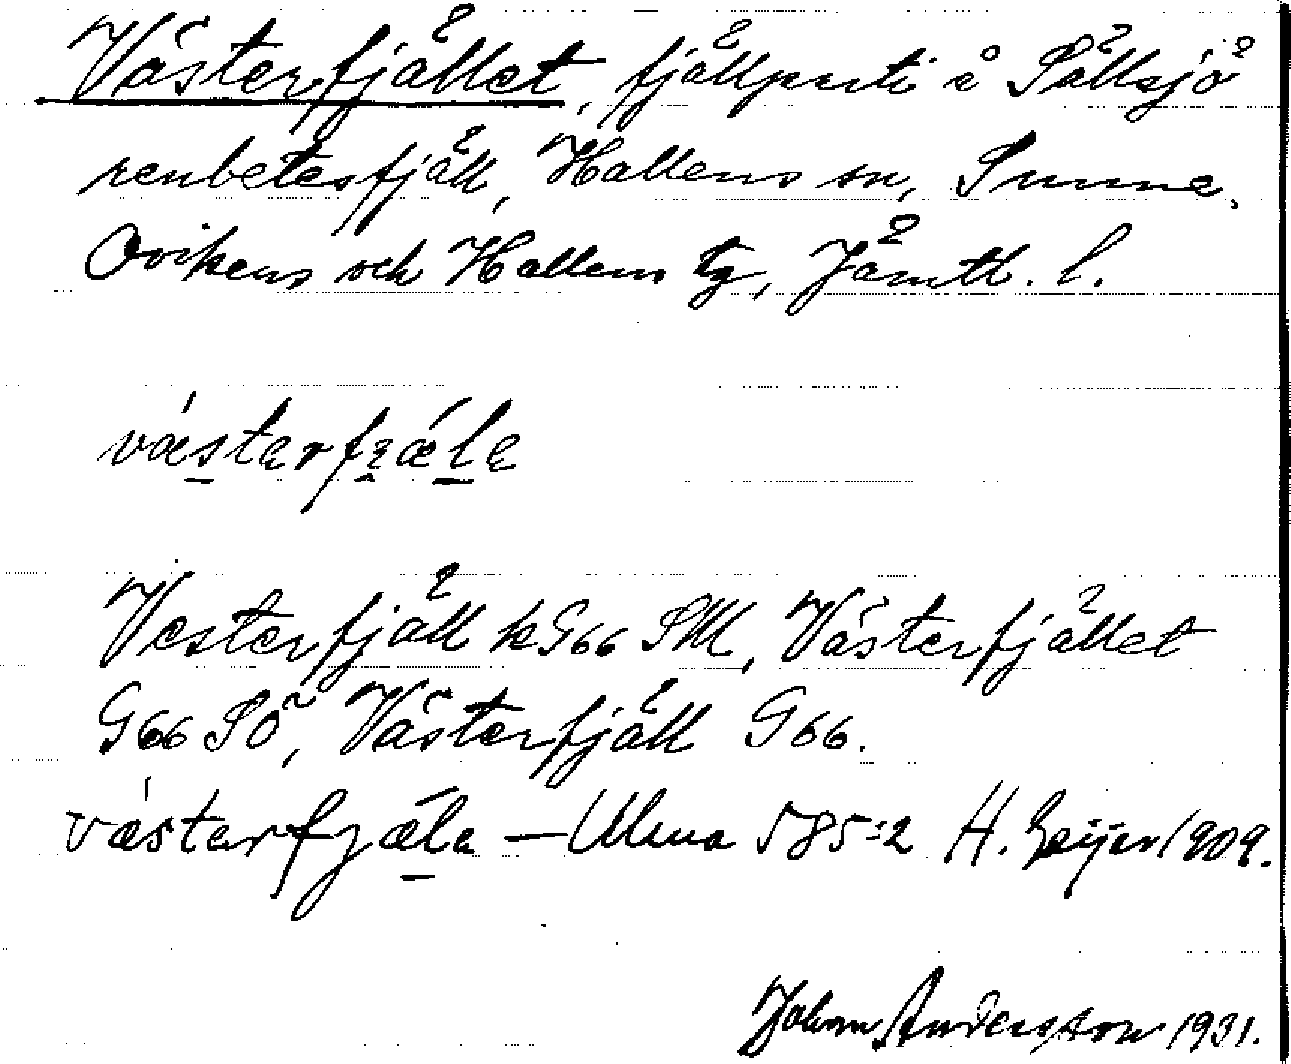 Västerfjället, fjällparti å Sällsjö
renbetesfjäll, Hallens sn, Sunne,
Ovikens och Hallens tg, Jämtl. l.
västerfjæle
Vesterfjäll k G66 SM, Västerfjället
G66 SÖ, Västerfjäll G66.
västerfjæla — Ulma 585:2 H. Geijer 1909.
Johan Andersson 1931.